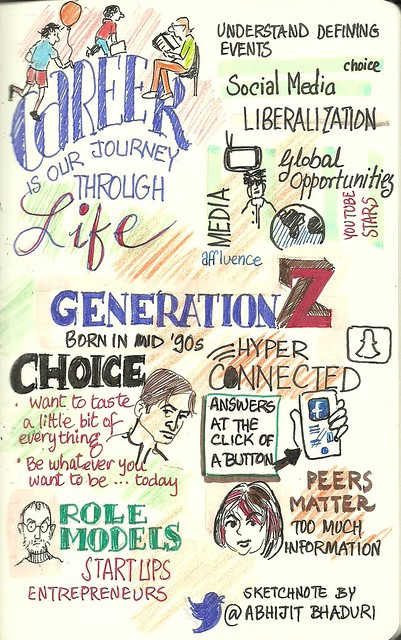 CAREER
IS OUR JOURNEY
THROUGH
Life
UNDERSTAND DEFINING
EVENTS
choice
Social Media
LIBERALIZATION
Global
Opportunities
MEDIA
YOUTUBE
STARS
affluence
GENERATION Z
BORN IN MID '90s
CHOICE
• want to taste
a little bit of
everything
• Be whatever you
want to be ... today
HYPER
CONNECTED
ANSWERS
AT THE
CLICK OF
A BUTTON
f
ROLE
MODELS
START UPS
ENTREPRENEURS
PEERS
MATTER
TOO MUCH
INFORMATION
SKETCHNOTE BY
@ABHIJIT BHADURI